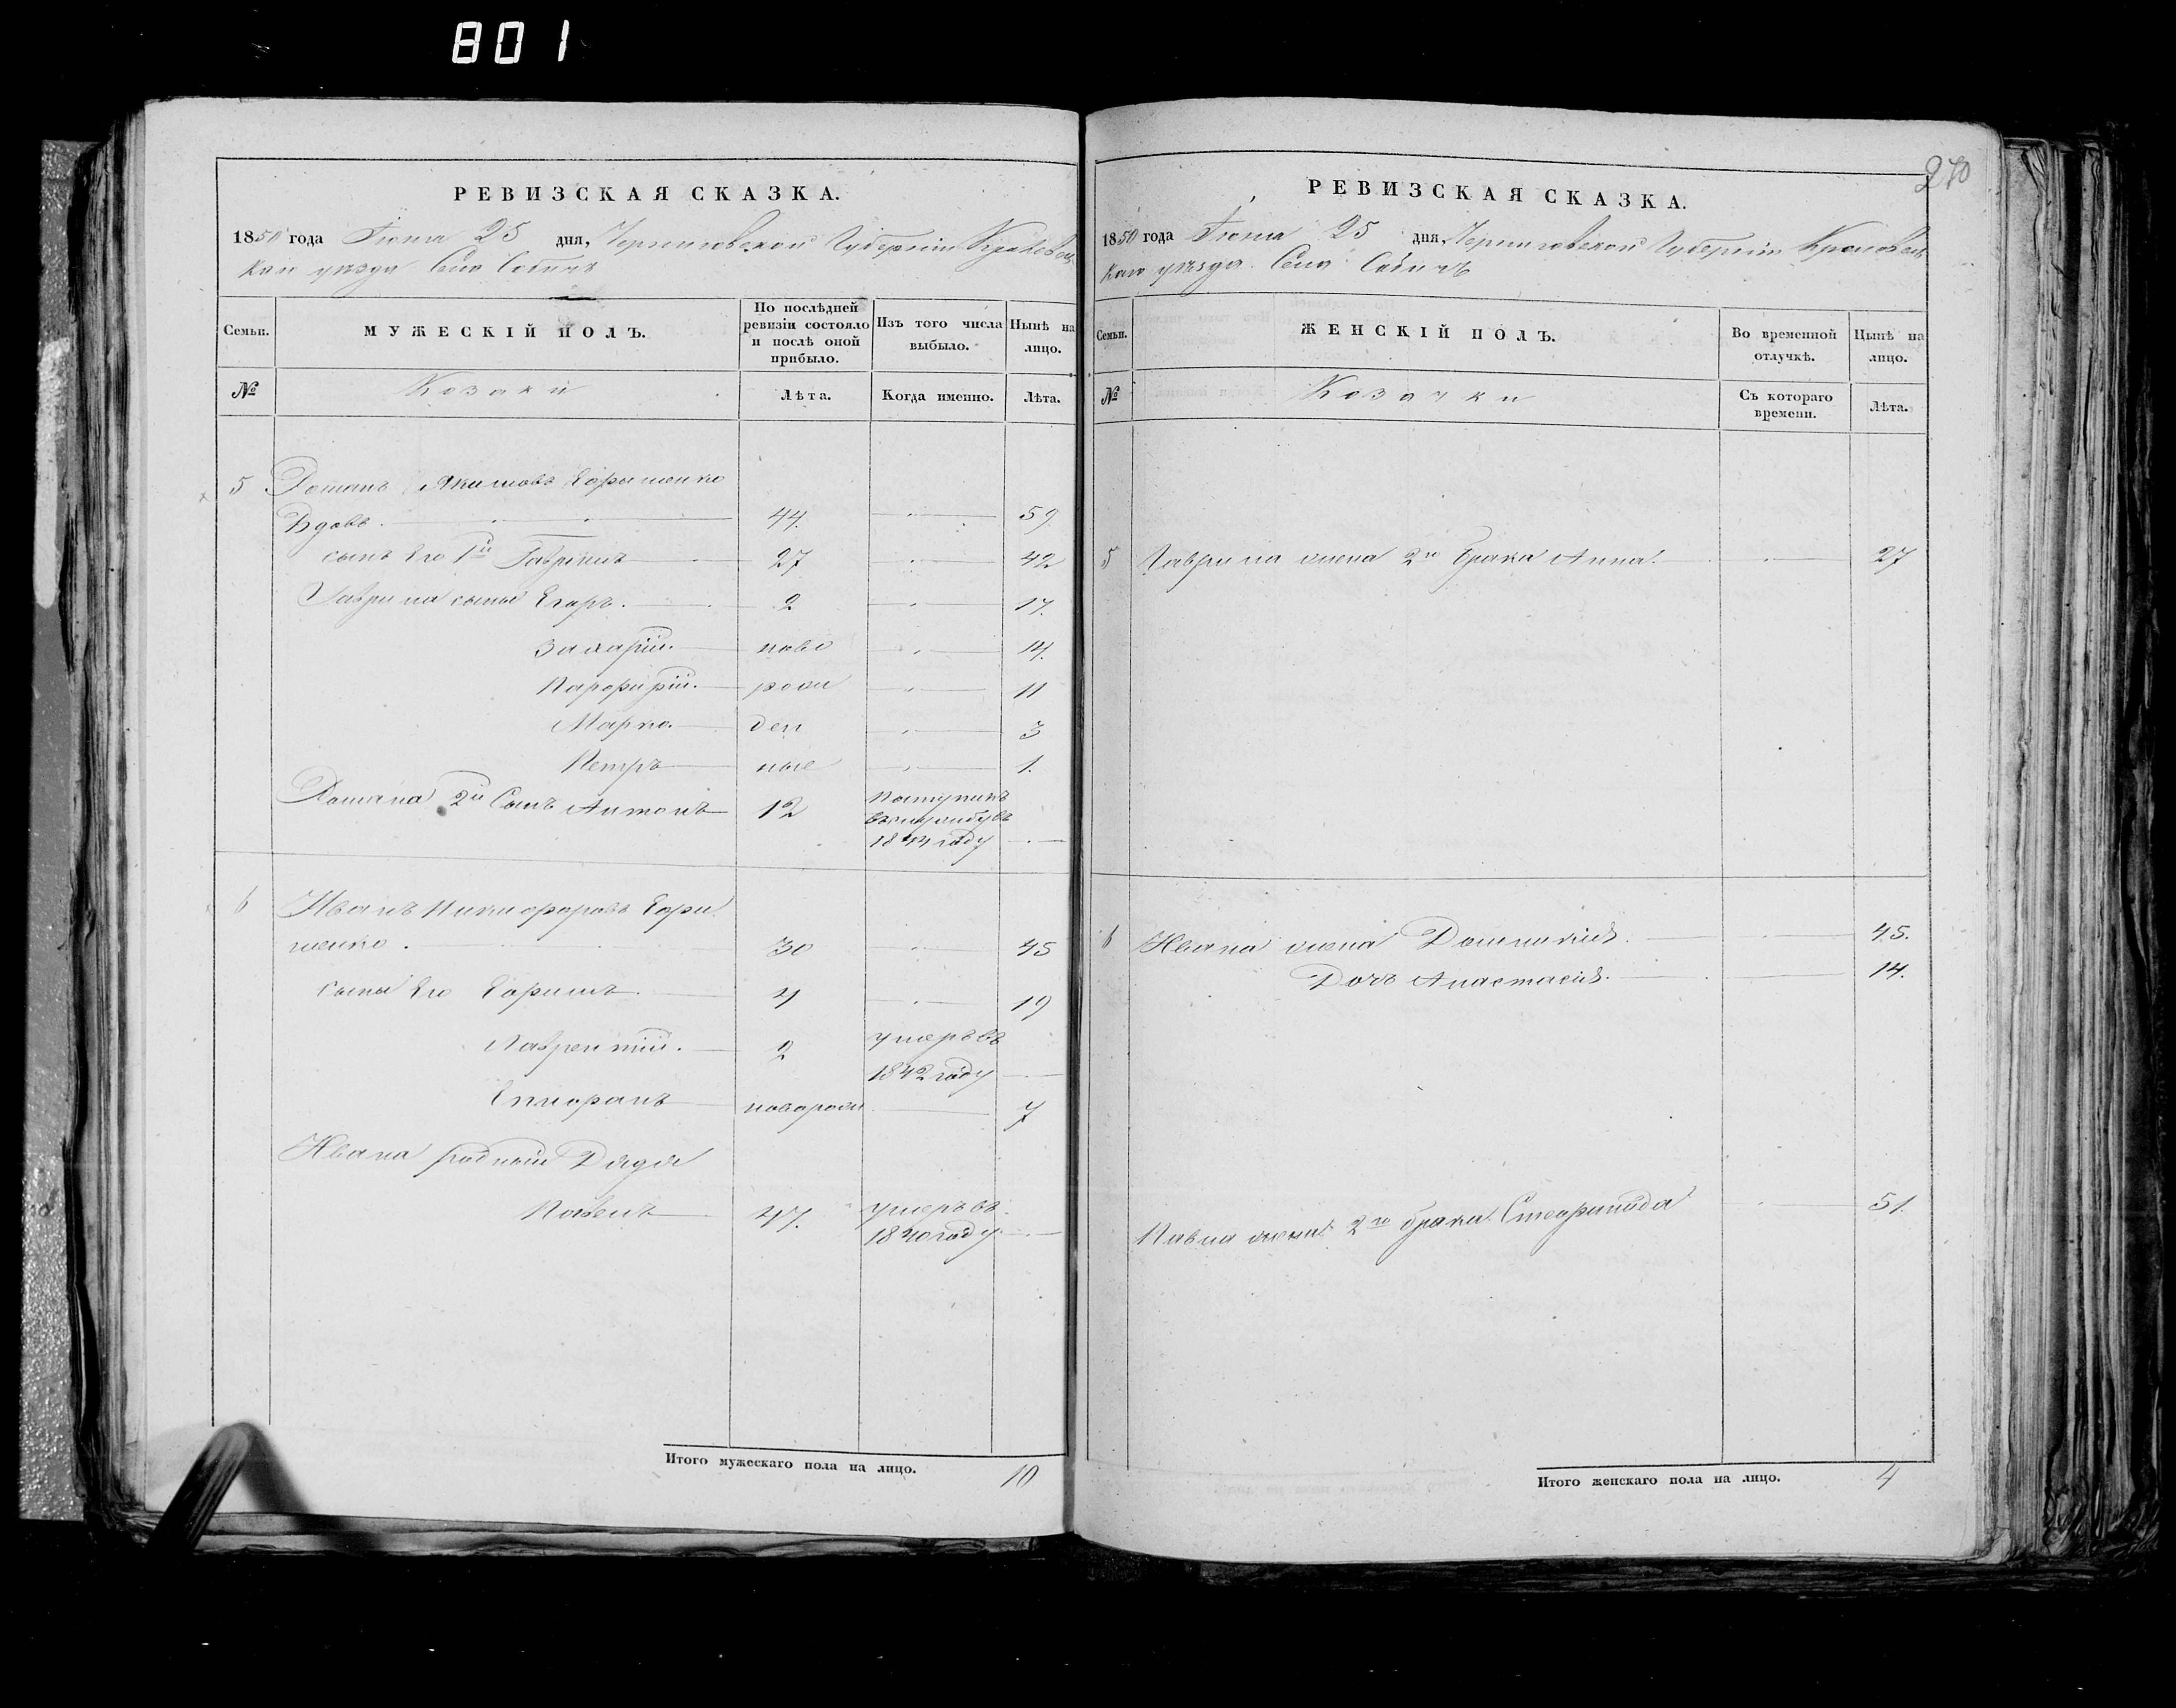 801
РЕВИЗСКАЯ СКАЗКА.
1850 года Іюня 25 дня, Черниговской Губерніи Кролевец
каго уезда Село Собичъ
Семьи.
МУЖЕСКІЙ ПОЛЪ.
По послѣдней ревизіи состояло и послѣ оной прибыло.
Изъ того числа выбыло.
Нынѣ на лицо.
№
Козаки
Лѣта.
Когда именно.
Лѣта.
5 Романъ Якимовъ
Вдовъ 44. 59
сынъ Его 1й Гаврилъ 27 42
Гаврила сыны Егоръ. 2 17.
Захарій. ново 14.
Парфирій. рож 11
Марко. ден 3
Петръ ные 1.
Романа 2й Сынъ Антонъ 12 Поступилъ
1844 году
6 Иванъ Никифоровъ Ефи
менко. 30 45
сыны Его Ефимъ. 4 19
Лаврентій. 2 умеръ въ
1842 году
новорож 7
Ивана родный Дядя
Павелъ 47. умеръ въ
1840 году
Итого мужескаго пола на лицо. 10
270
РЕВИЗСКАЯ СКАЗКА.
1850 года Іюня 25 дня, Черниговской Губерніи Кролевец
каго уезда. Село Собичъ
Семьи.
ЖЕНСКІЙ ПОЛЪ.
Во временной отлучкѣ.
Нынѣ на лицо.
№
Козачки
Съ котораго времени.
Лѣта.
5 Гаврила жена 2го брака Анна. 27
6 Ивана жена Домникія. 45.
Дочь Анастасія. 14.
Павла жена 2го брака 51.
Итого женскаго пола на лицо. 4